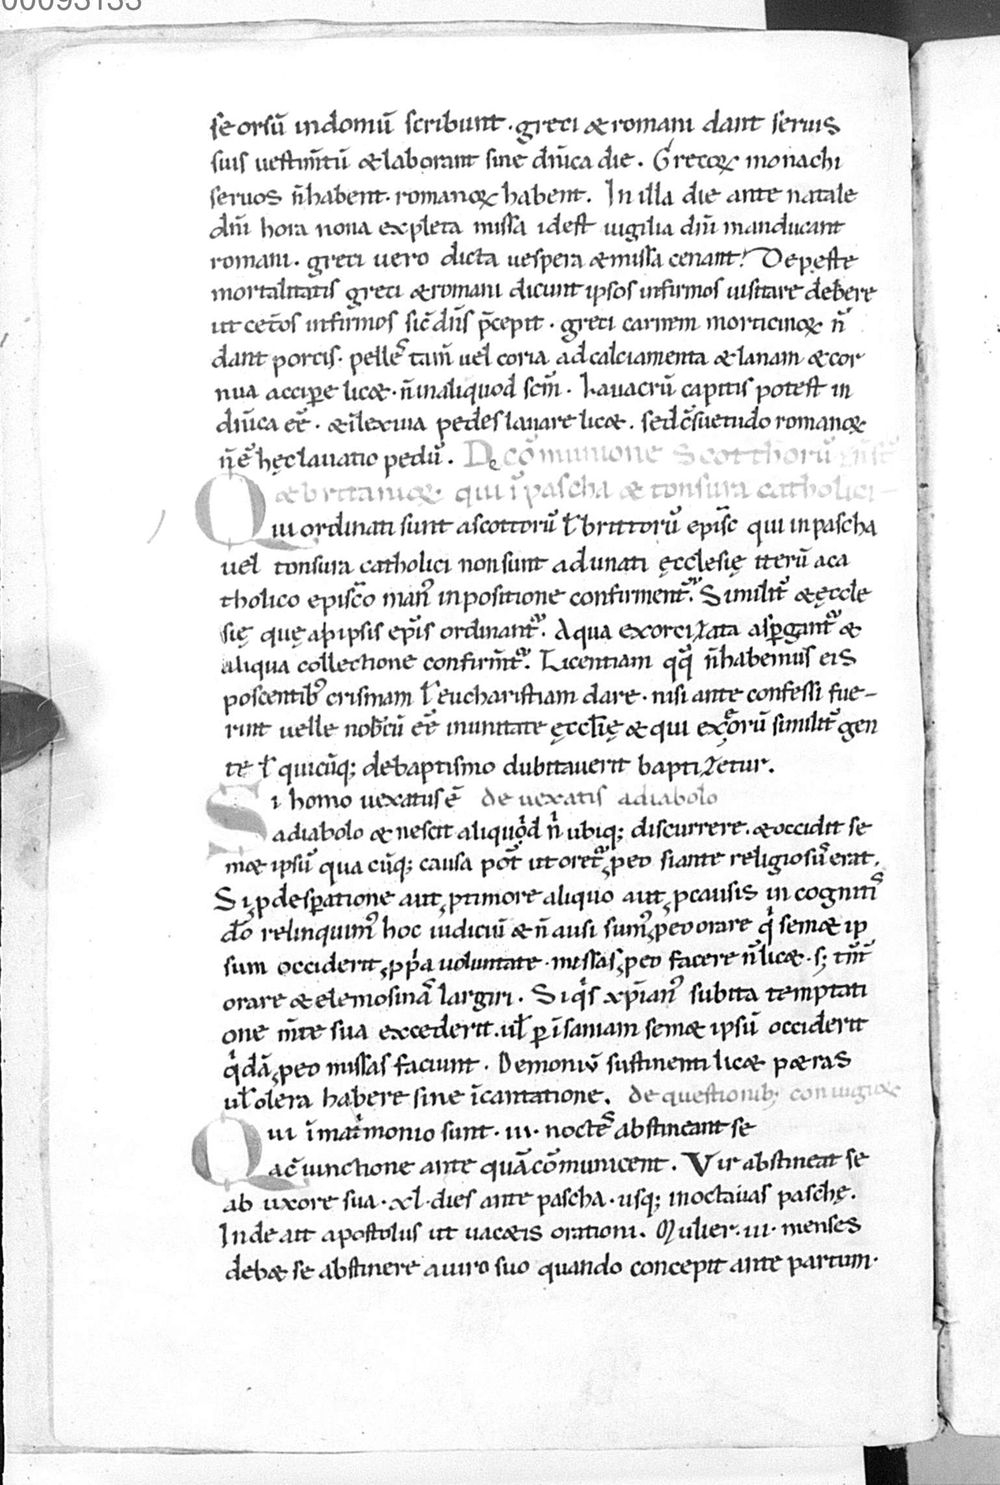 00093133
se orsū indomū scribunt · greci & romani dant seruis
suis uestim̄tū & laborant sine dn̄ica die . Grecoꝝ monachi
seruos n̄ habent · romanoꝝ habent . In illa die ante natale
dn̄i hora nona expleta missa idest uigilia dn̄i manducant
romani . greci uero dicta uespera & missa cenant . De peste
mortalitatis greci & romani dicunt ipsos infirmos uisitare debere
ut cet̄os infirmos sic̄ dn̄s p̄cepit . greci carnem morticinoꝝ n̄
dant porcis · pelles tam̄ uel coria ad calciamenta & lanam & cor
nua accipere lic& · n̄ in aliquod sc̄m . Lauacrū capitis potest in
dn̄ica eē · & ilexiua pedes lauare lic& . sed c̄suetudo romanoꝝ
n̄ ē hęc lauatio pedū . De cōmunione Scotthorū
& britanicę qui ī pascha & tonsura catholici
Qui ordinati sunt a scottorū ł brittorū epīsc qui in pascha
uel tonsura catholici non sunt adunati ęcclesię iterū a ca
tholico epīsco man᷒ inpositione confirment᷑ . Similit᷑ & ęccle
się quę ab ipsis ep̄is ordinant᷑ . Aqua exorcizata aspergant᷑ &
aliqua collectione confirm̄t᷑ . Licentiam qq n̄ habemus eis
poscentib᷒ crismam ł eucharistiam dare · nisi ante confessi fue-
rint uelle nob̄cū eē in unitate ęccl̄ię & qui ex hoꝝ similit᷑ gen
te ł quicūq; de baptismo dubitauerit baptizetur .
Si homo uexatus ē de uexatis a diabolo
a diabolo & nescit aliquod n̄ ubiq; discurrere . & occidit se
m& ipsū qua cūq; causa pot̄ ut oret᷑ ꝓ eo si ante religiosus erat .
Si ꝓ desperatione aut ꝓ timore aliquo aut ꝓ causis incognitis
dō relinquim᷒ hoc iudiciū & n̄ ausi sum᷒ ꝓ eo orare qͥ sem& ip
sum occiderit ꝓpͥa uoluntate · missas ꝓ eo facere n̄ lic& · s; tm̄
orare & elemosinā largiri . Si qͥs xp̄ian᷒ subita temptati
one m̄te sua excederit · uł ꝑ īsaniam sem& ipsū occiderit
qͥdā ꝓ eo missas faciunt . Demoniū sustinenti lic& p&ras
uł olera habere sine īcantatione . de questionib; coniugioꝝ
Qui ī matͥmonio sunt · iii · noctes abstineant se
a c̄iunctione ante quā cōmunicent . Vir abstineat se
ab uxore sua · xl · dies ante pascha · usq; in octauas paschę .
Inde ait apostolus ut uac&is orationi . Mulier · iii · menses
deb& se abstinere a uiro suo quando concepit ante partum ·